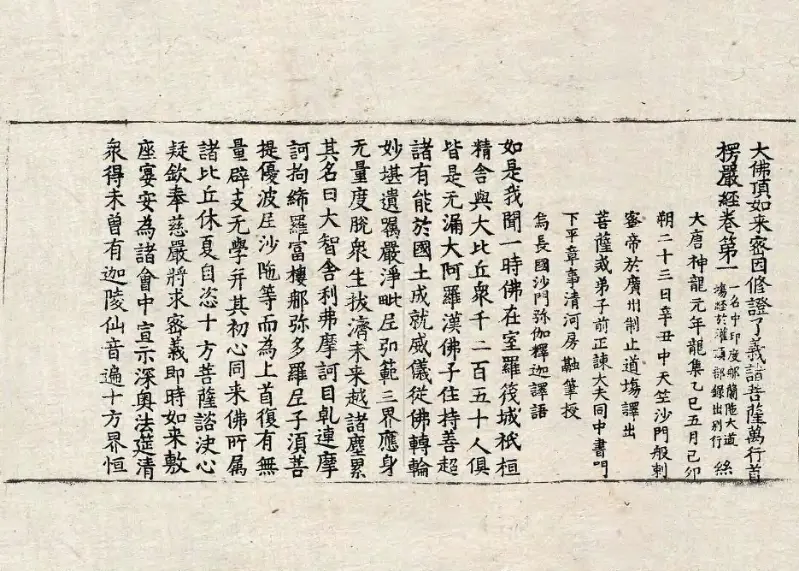 大佛頂如来密因修證了義諸菩薩萬行首
楞嚴経卷第一
一名中印度那蘭陁大道
塲経於灌頂部録出別行
絲
大唐神龍元年龍集乙巳五月己卯
朔二十三日辛丑中天竺沙門般剌
蜜帝於廣州制止道塲譯出
菩薩戒弟子前正諫大夫同中書門
下平章事清河房融筆授
烏長國沙門弥伽釋迦譯語
如是我聞一時佛在室羅筏城祇桓
精舍與大比丘衆千二百五十人俱
皆是无漏大阿羅漢佛子住持善超
諸有能於國土成就威儀從佛轉輪
妙堪遺囑嚴淨毗尼弘範三界應身
无量度脫衆生拔濟未来越諸塵累
其名曰大智舍利弗摩訶目乹連摩
訶拘絺羅富樓那弥多羅尼子湏菩
提優波尼沙陁等而為上首復有無
量辟支无學并其初心同来佛所属
諸比丘休夏自恣十方菩薩諮決心
疑欽奉慈嚴將求密義即時如来敷
座宴安為諸會中宣示深奥法莚清
衆得未曾有迦陵仙音遍十方界恒